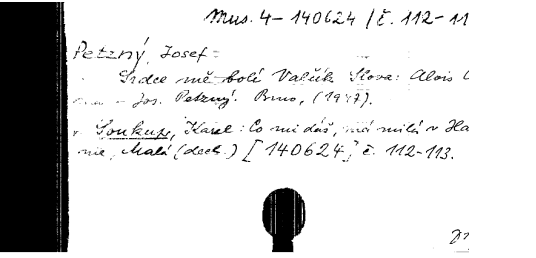 Mus. 4-140624 / č. 112-11
Petzný, Josef:
Srdce mě bolí Valčík Slova: Alois
Jos. Petzný. Brno, (1947).
Soukup, Karel: Co mi dáš, má milá v Ha
nie, Malá (dech.) [140624] č. 112-113.